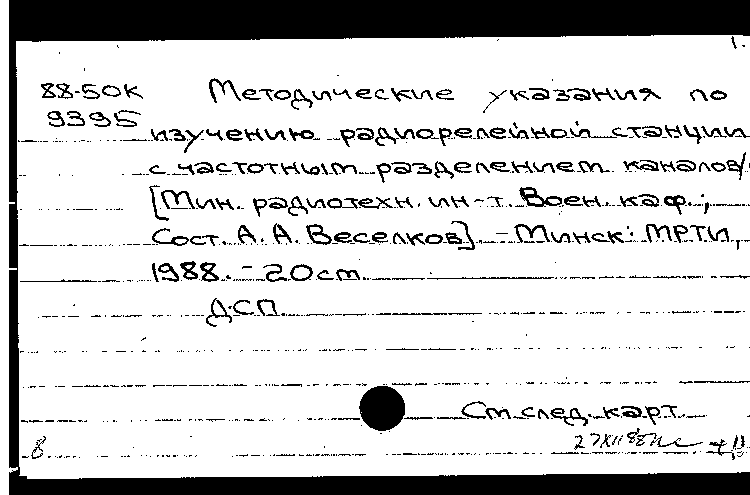 1.
88-50К Методические указания по
9395 изучению радиорелейной станции
с частотным разделением каналов/
[Мин. радиотехн. ин-т. Воен. каф.;
Сост. А. А. Веселков]. - Минск: МРТИ,
1988. - 20 см.
ДСП.
См. след. карт.
8 27XII88